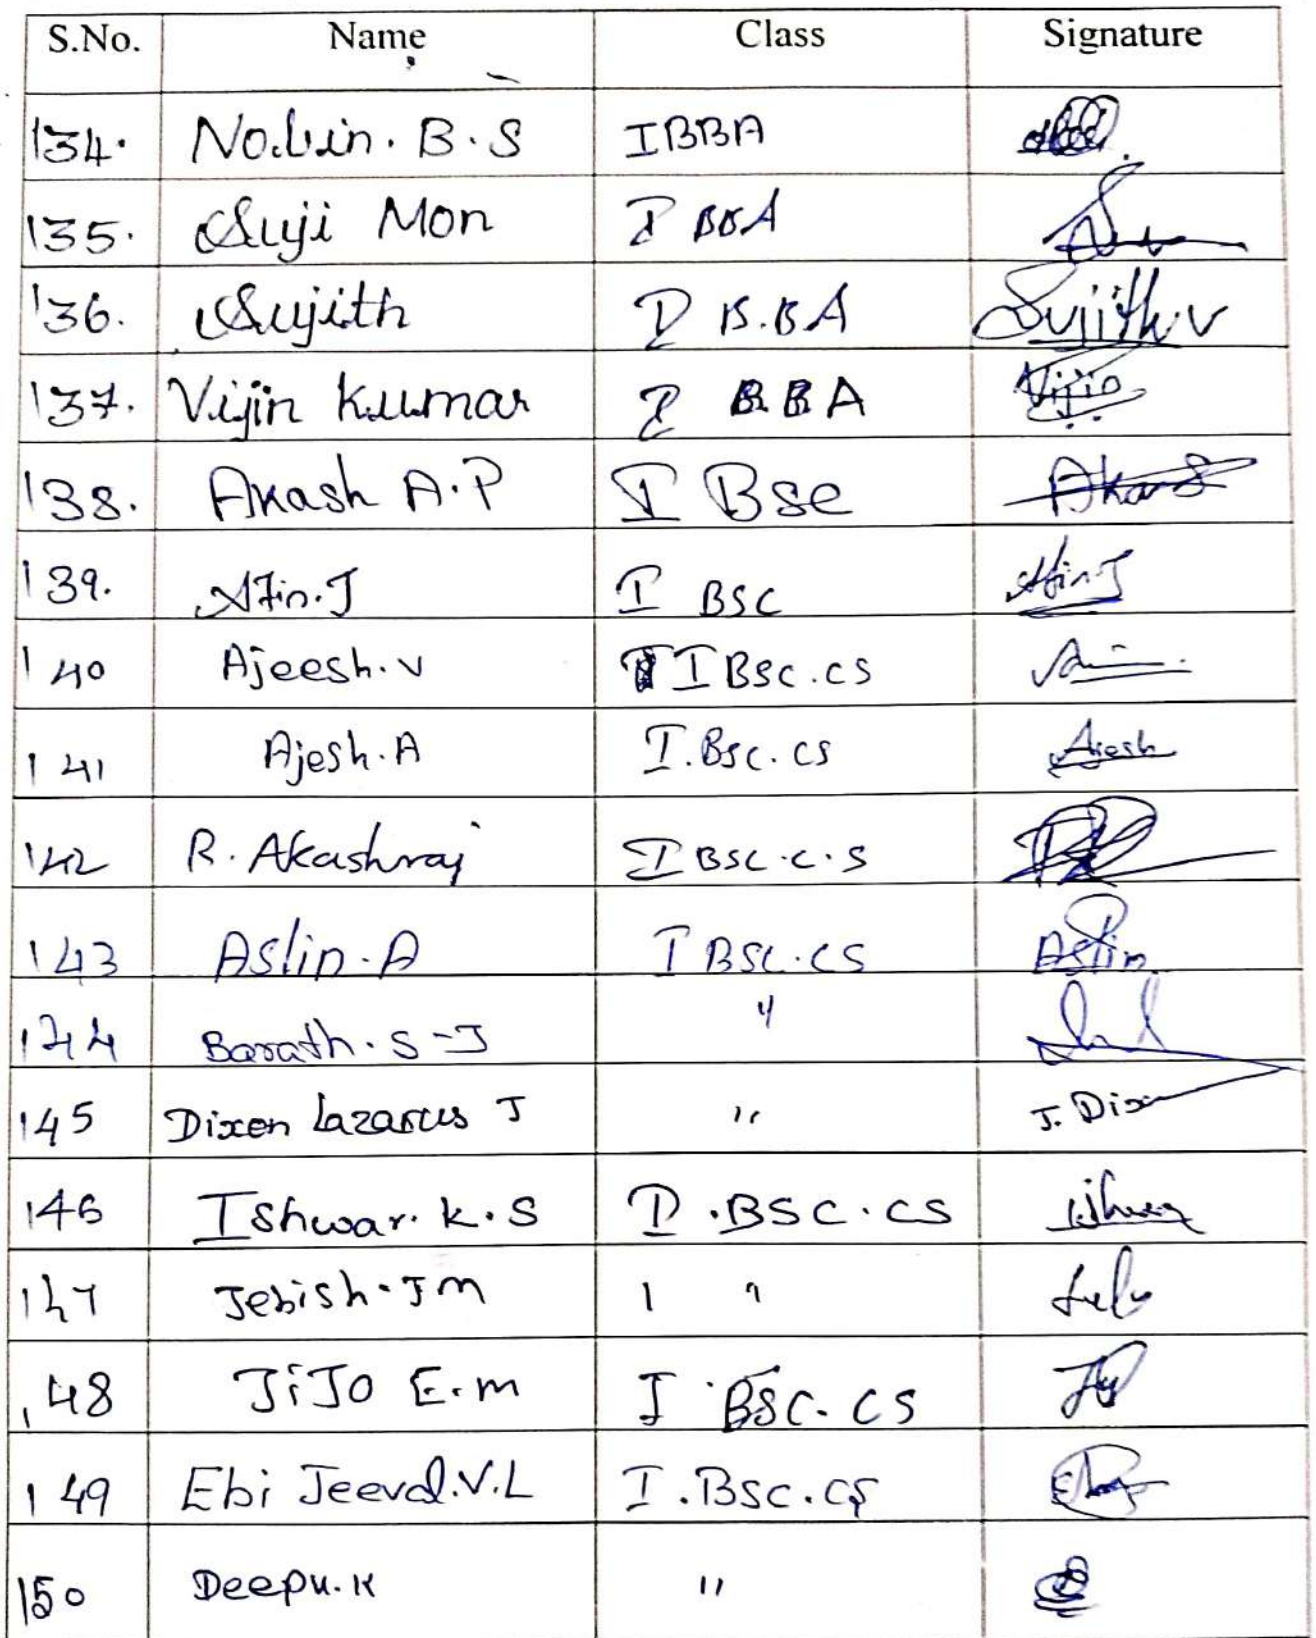 S.No. Name Class Signature
134. Nobin. B. S I BBA
135. Suji Mon I BBA
136. Sujith I B.BA Sujith v
137. Vijin Kumar I BBA Vijin
138. Akash A.P I Bsc Akash
139. I BSC
140 Ajeesh. v I BSC.CS
141 Ajesh. A I. BSC. CS Ajesh
142 R. Akashraj I BSC. C. S
143 Aslin. A I BSC. CS Aslin
144 Barath. S-J "
145 Dixen Lazarus J " J. Dixn
146 Ishwar. K. S I. BSC. CS
147 Jebish. J M I "
148 JiJO E. m I. BSC. CS
149 Ebi Jeeval. V. L I. BSC. CS
150 Deepu. K "